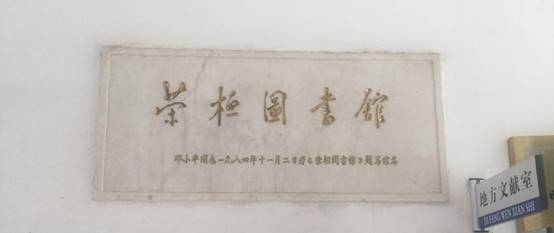 荣桓圖書館
邓小平同志一九八四年十一月二日为《荣桓图書館》题写館名
地方文献室
DI FANG WEN XIAN SHI